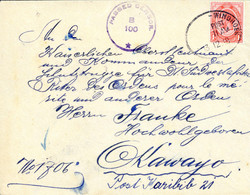 PASSED CENSOR
B
100
WINDHUK
An den
Kaiserlichen Oberstleutnant
und Kommandeur der
Schutztruppe für Dt. Südwestafrika
Ritter des Ordens pour le mé-
rite und anderer Orden
Herrn Franke
Hochwohlgeboren
No 1806
Okawayo
Post Karibib 21